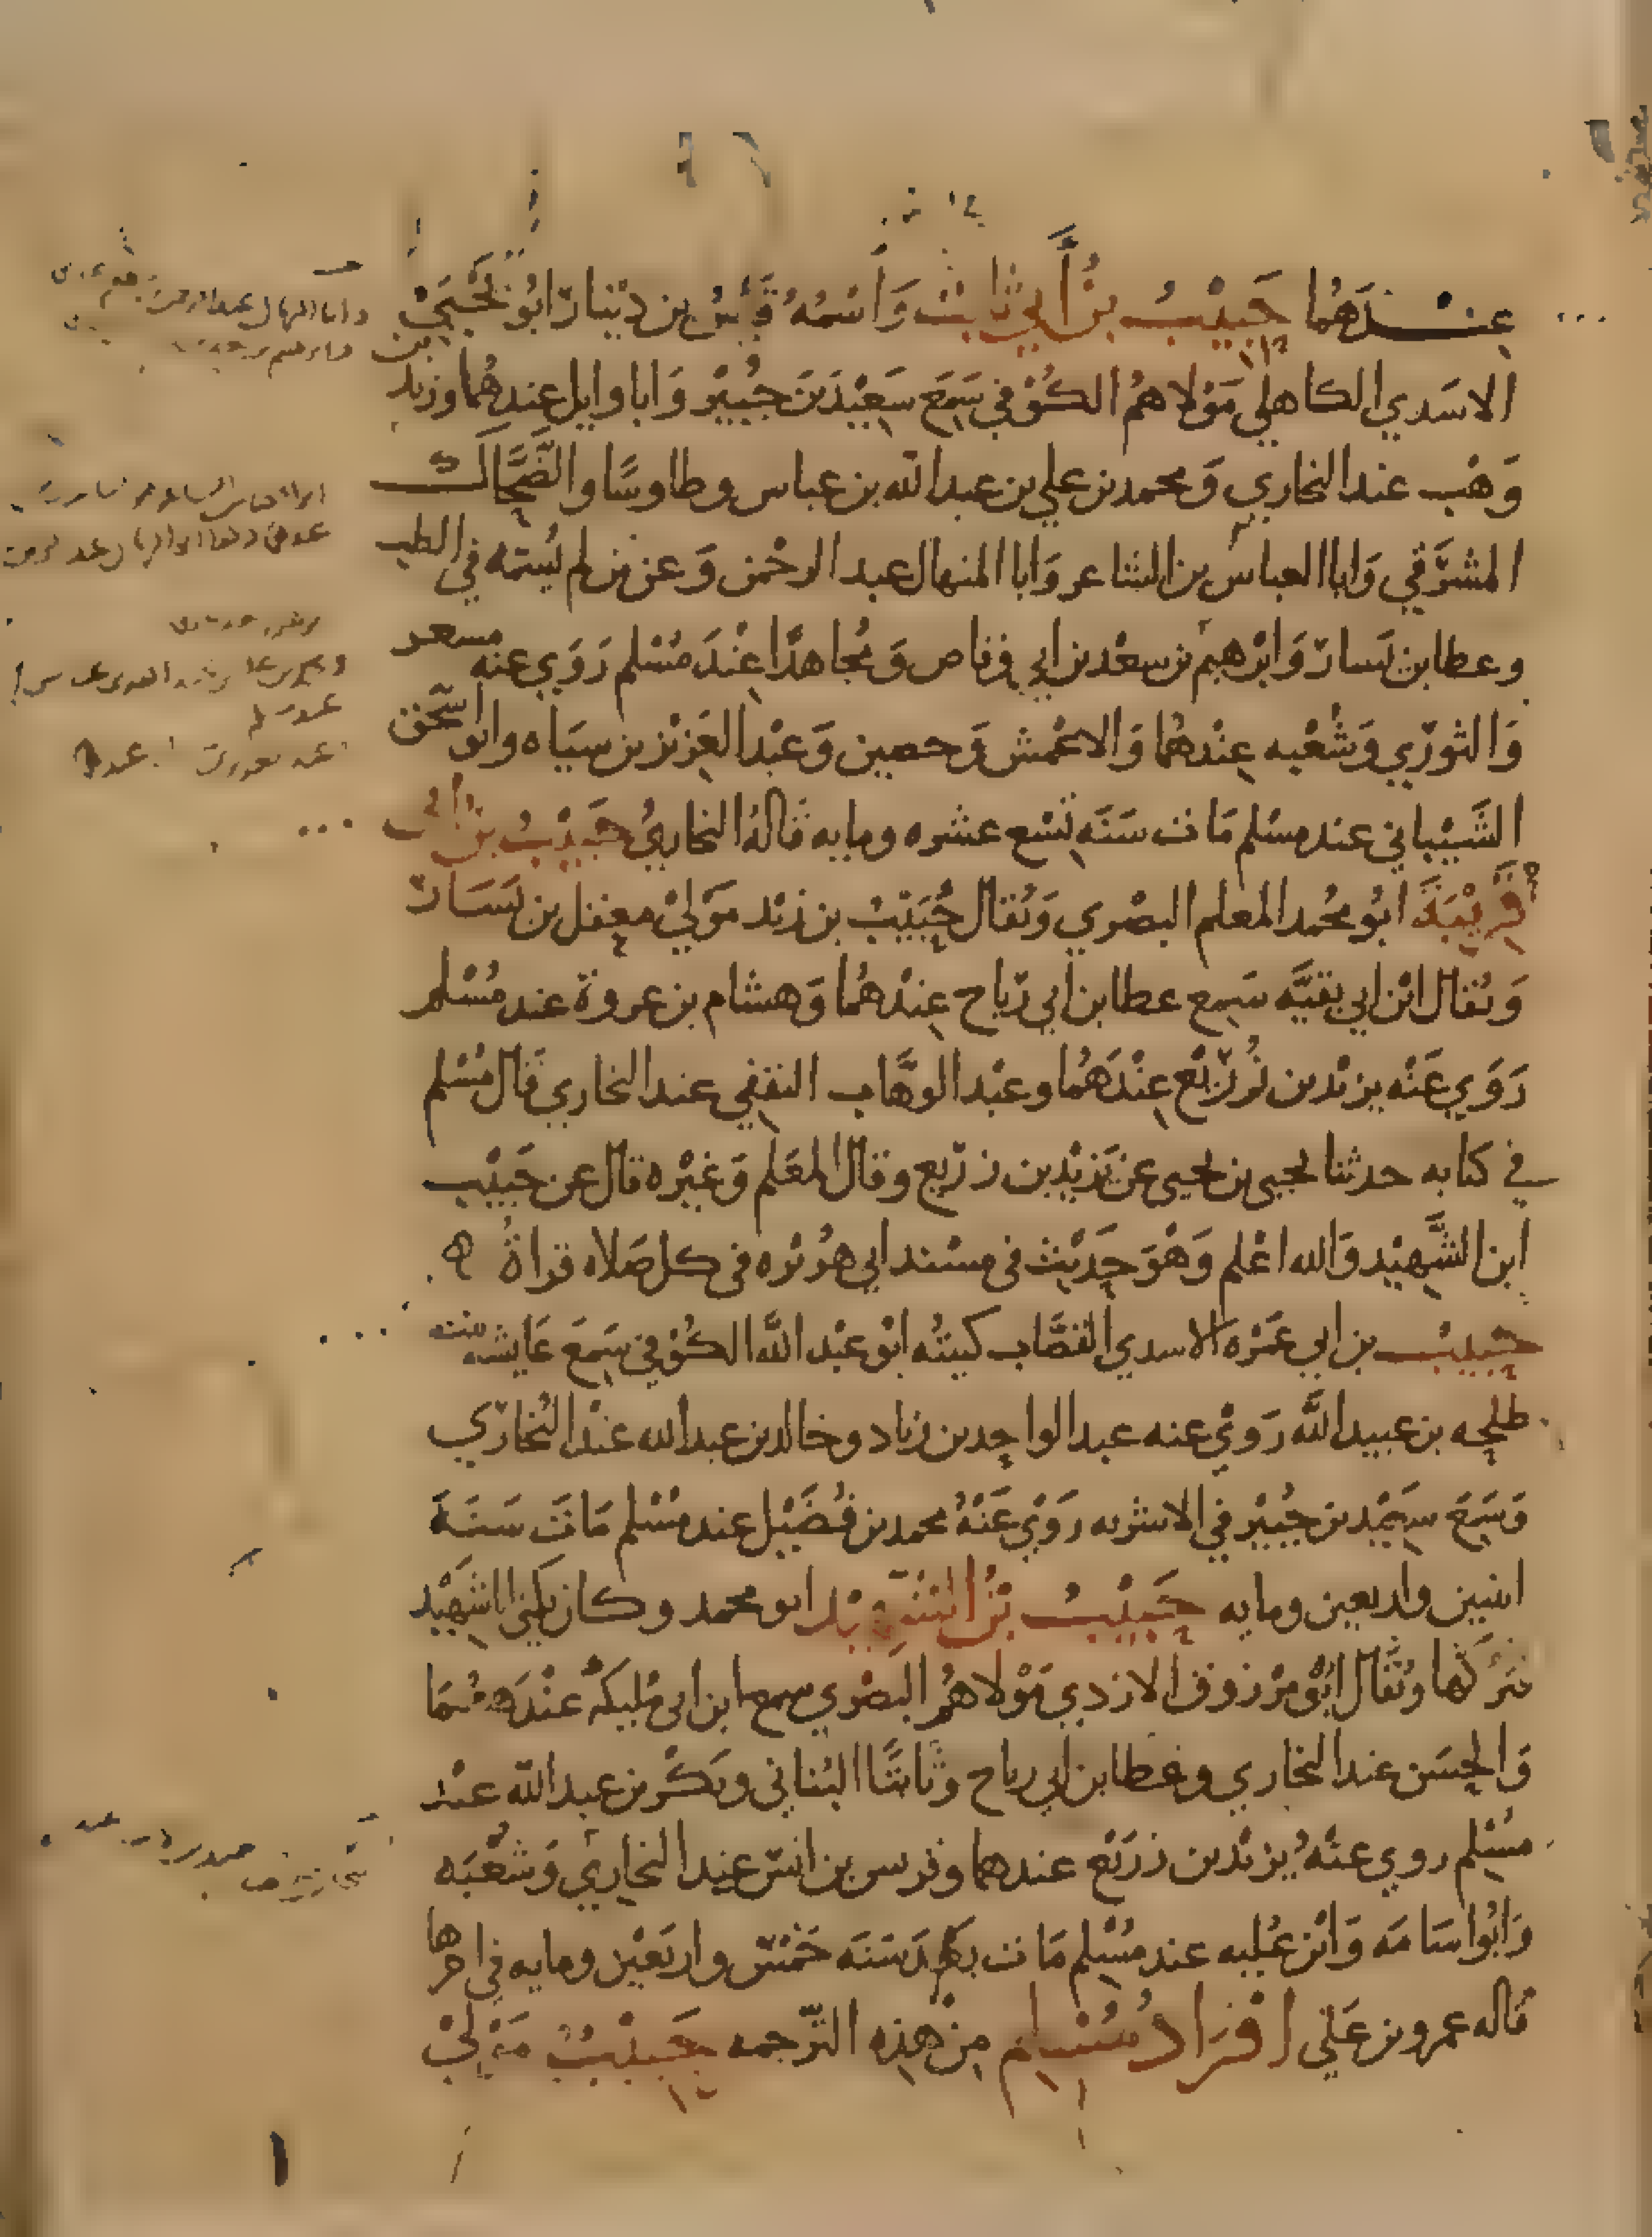 عندهما حَبيْبُ بنُ أبي ثابت وَاسْمُهُ قَيْسُ بن دِيْنار ابُو يَحْيَىْ
الاسَدي الكاهلي مَوْلاهمُ الكُوْفي سَمِعَ سَعِيْدَ بنَ جُبيْر وَابا وايل عِندهُما وزيد بن
وَهْب عند البخاري وَمحمد بن علي بن عبد الله بن عباس وطاوسًا والضَّحَّاك
المشرَقي وَابا العباس بن الشاعر وَابا المنهال عبد الرحْمن وَعن من لم يُسمّه في الطب
وعطا بن يَسار وَابرْهيم بن سعْد بن ابي وقاص وَمُجاهدًا عِنْدَ مُسْلم رَوَي عنه مسعر
وَالثوْري وَشُعْبه عِنْدهُما وَالاعْمش وَحصين وَعَبْد العَزيْز بن سيَاه وابو اسْحَق
الشَّيْباني عند مسْلم مَات سَنَه تسْع عشره ومايه قَالهُ البخاريُ حَبيْبُ بن ابي
قَرِيْبَةَ ابُو محمُد المعلم البصْري وَيُقال حُبَيّبُ بن زيْد مَوْليْ معقل بن يَسَار
وَيُقال ابْن ابي بقيَّه سَمِع عطا بن ابي رَباح عِنْدهُما وَهشام بن عروة عند مُسْلم
رَوَي عَنْه يزيْد بن زُرَيْع عِنْدَهُما وعبْد الوهَّاب الثقفي عند البخاري قَال مُسْلم
في كتابه حدثنا يحيى بن يحيى عن يَزيْد بن زرَيع وقال المعَلم وَغيْره قال عن حَبيْب
ابن الشَّهِيْد وَالله اعْلم وَهْوَ حَدِيْث في مسْند ابي هرُيْره في كل صَلاه قراةُ
حَبيبْ بن ابي عَمْرَه الاسدي القصَّاب كنيتُه ابُو عبْد الله الكوْفي سَمِعَ عَايشه بنت
طلحه بن عبيد الله رَوَيْ عنه عبد الواحِد بن زياد وخالد بن عبد الله عنْد البُخاري
وَسَمِعَ سعِيْد بن جُبيْر في الاشربه رَوَيْ عَنْهُ محمد بن فُضَيْل عند مسْلم مَاتَ سَنَةَ
اثنين واربعين ومايه حَبيْبُ بْنُ الشَهِيْد ابو محمد وكان يكني ابا شهِيْد
فتركها ويُقَال ابُو مرْزوق الازدي مَوْلاهمُ البصْري سمع ابن ابي مُليكَه عنْدَهُمَا
وَالحسَن عند البخاري وعَطا بن ابي رباح وثابتًا البُناني وبَكْر بن عبد الله عنْد
مسْلم روي عنْهُ يزيْد بن زرَيْع عندهما وقريس بن انس عند البخاري وَشُعْبَه
وَابُو اسَامَه وَابْن عُليه عند مُسْلم مَات بعْدَ سَنَه خمْس واربَعيْن ومايه في اخرها
قاله عمرو بن عَلي افْرَادُ مُسْلم مِنْ هذِه الترْجمه حَبيْبُ مَوْليْ